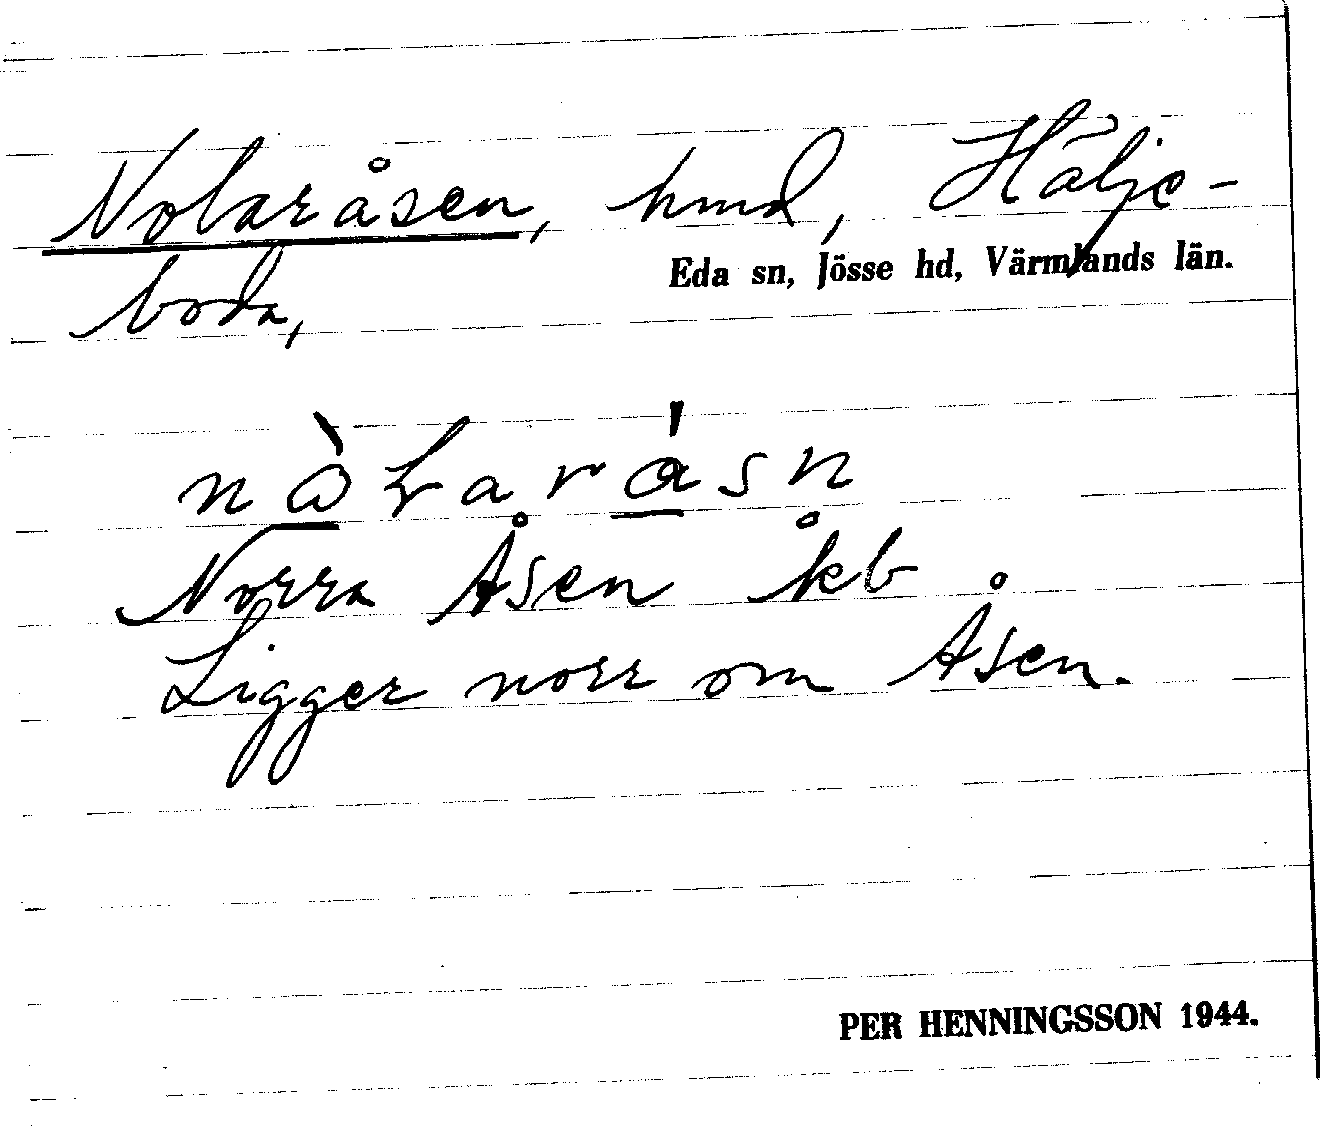 Nolaråsen, hmd, Hälje-
Eda sn, Jösse hd, Värmlands län.
boda,
Norra Åsen åkb
Ligger norr om Åsen.
PER HENNINGSSON 1944.